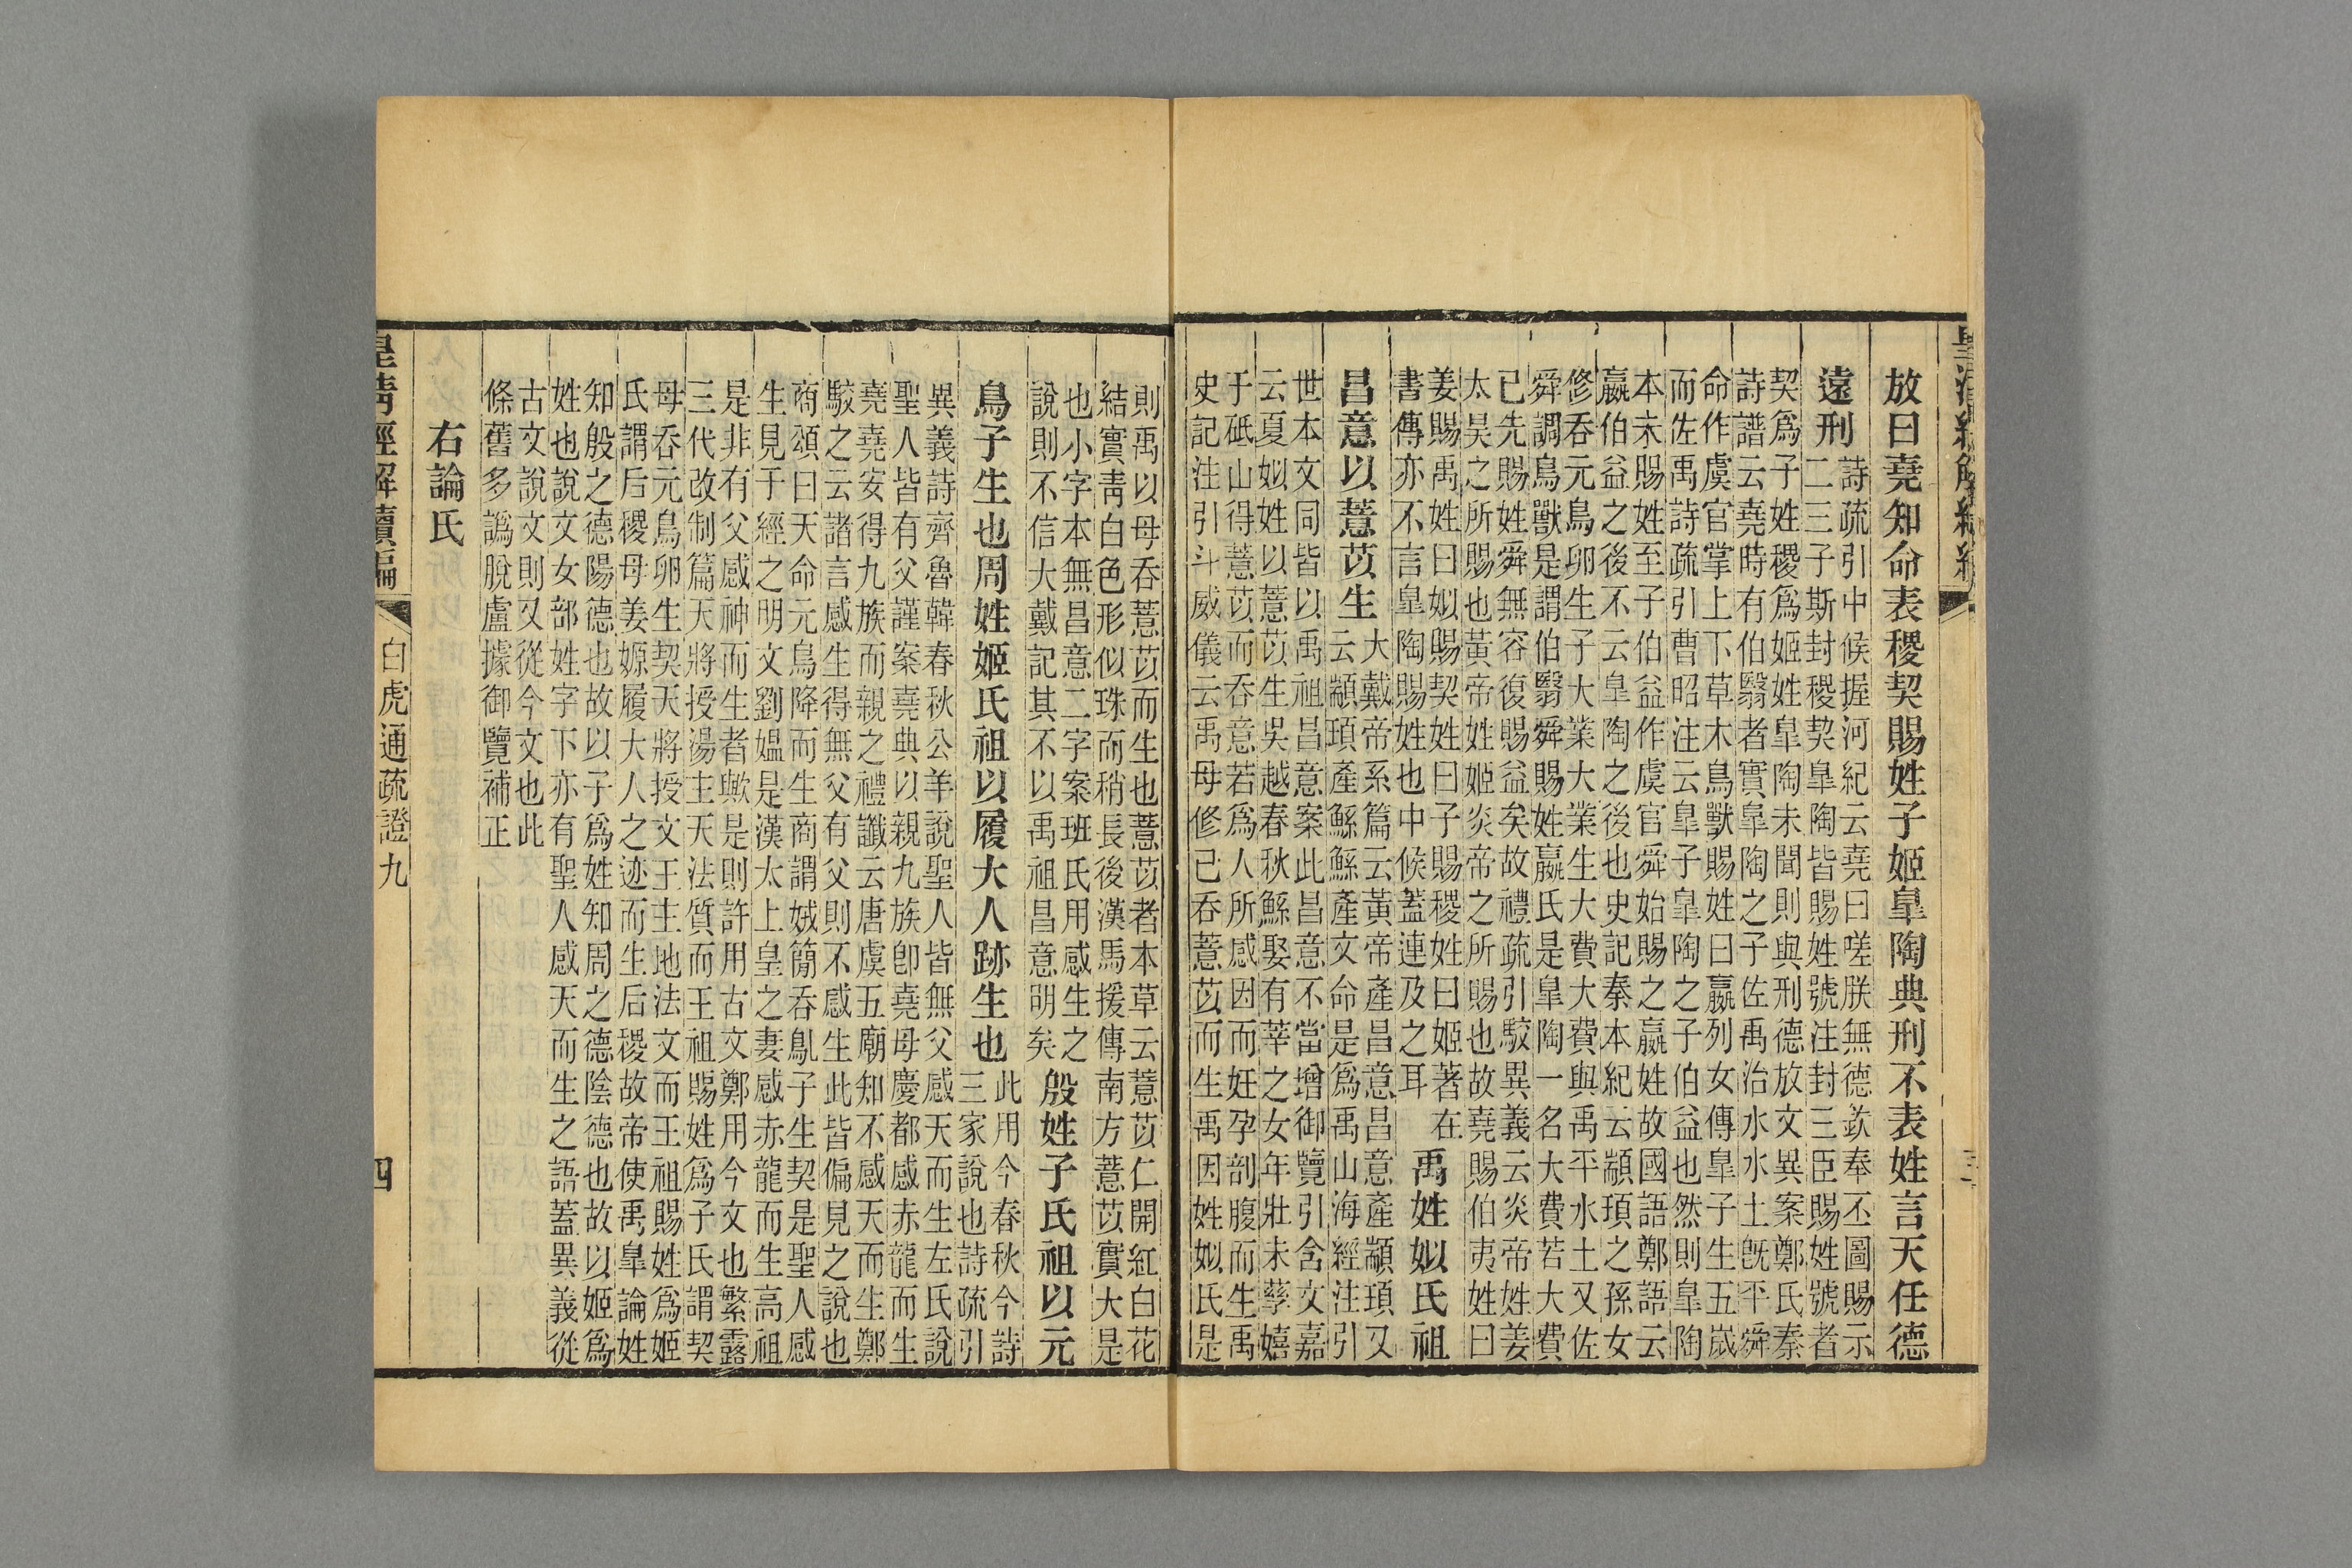 皇清經解續編
三
放曰堯知命表稷契賜姓子姬皐陶典刑不表姓言天任德
遠刑
詩疏引中候握河紀云堯曰嗟朕無德欽奉丕圖賜示
二三子斯封稷契皐陶皆賜姓號注封三臣賜姓號者
契爲子姓稷爲姬姓皐陶未聞則與刑德放文異案鄭氏秦
詩譜云堯時有伯翳者實皐陶之子佐禹治水水土旣平舜
命作虞官掌上下草木鳥獸賜姓曰嬴列女傳皐子生五歲
而佐禹詩疏引曹昭注云皐子皐陶之子伯益也然則皐陶
本末賜姓至子伯益作虞官舜始賜之嬴姓故國語鄭語云
嬴伯益之後不云皐陶之後也史記秦本紀云顓頊之孫女
修吞元鳥卵生子大業大業生大費大費與禹平水土又佐
舜調鳥獸是謂伯翳舜賜姓嬴氏是皐陶一名大費若大費
已先賜姓舜無容復賜益矣故禮疏引駮異義云炎帝姓姜
太昊之所賜也黃帝姓姬炎帝之所賜也故堯賜伯夷姓曰
姜賜禹姓曰姒賜契姓曰子賜稷姓曰姬著在
書傳亦不言皐陶賜姓也中候蓋連及之耳
禹姓姒氏祖
昌意以薏苡生
大戴帝系篇云黃帝產昌意昌意產顓頊又
云顓頊產鯀鯀產文命是爲禹山海經注引
世本文同皆以禹祖昌意案此昌意不當增御覽引含文嘉
云夏姒姓以薏苡生吳越春秋鯀娶有莘之女年壯未孳嬉
于砥山得薏苡而吞意若爲人所感因而妊孕剖腹而生禹
史記注引斗威儀云禹母修已吞薏苡而生禹因姓姒氏是
則禹以母吞薏苡而生也薏苡者本草云薏苡仁開紅白花
結實靑白色形似珠而稍長後漢馬援傳南方薏苡實大是
也小字本無昌意二字案班氏用感生之
說則不信大戴記其不以禹祖昌意明矣
殷姓子氏祖以元
鳥子生也周姓姬氏祖以履大人跡生也
此用今春秋今詩
三家說也詩疏引
異義詩齊魯韓春秋公羊說聖人皆無父感天而生左氏說
聖人皆有父謹案堯典以親九族卽堯母慶都感赤龍而生
堯堯安得九族而親之禮讖云唐虞五廟知不感天而生鄭
駮之云諸言感生得無父有父則不感生此皆偏見之說也
商頌曰天命元鳥降而生商謂娀簡吞鳦子生契是聖人感
生見于經之明文劉媼是漢太上皇之妻感赤龍而生高祖
是非有父感神而生者歟是則許用古文鄭用今文也繁露
三代改制篇天將授湯主天法質而王祖賜姓爲子氏謂契
母吞元鳥卵生契天將授文王主地法文而王祖賜姓爲姬
氏謂后稷母姜嫄履大人之迹而生后稷故帝使禹皐論姓
知殷之德陽德也故以子爲姓知周之德陰德也故以姬爲
姓也說文女部姓字下亦有聖人感天而生之語蓋異義從
古文說文則又從今文也此
條舊多譌脫盧據御覽補正
右論氏
皇淸經解續編
白虎通疏證九
四